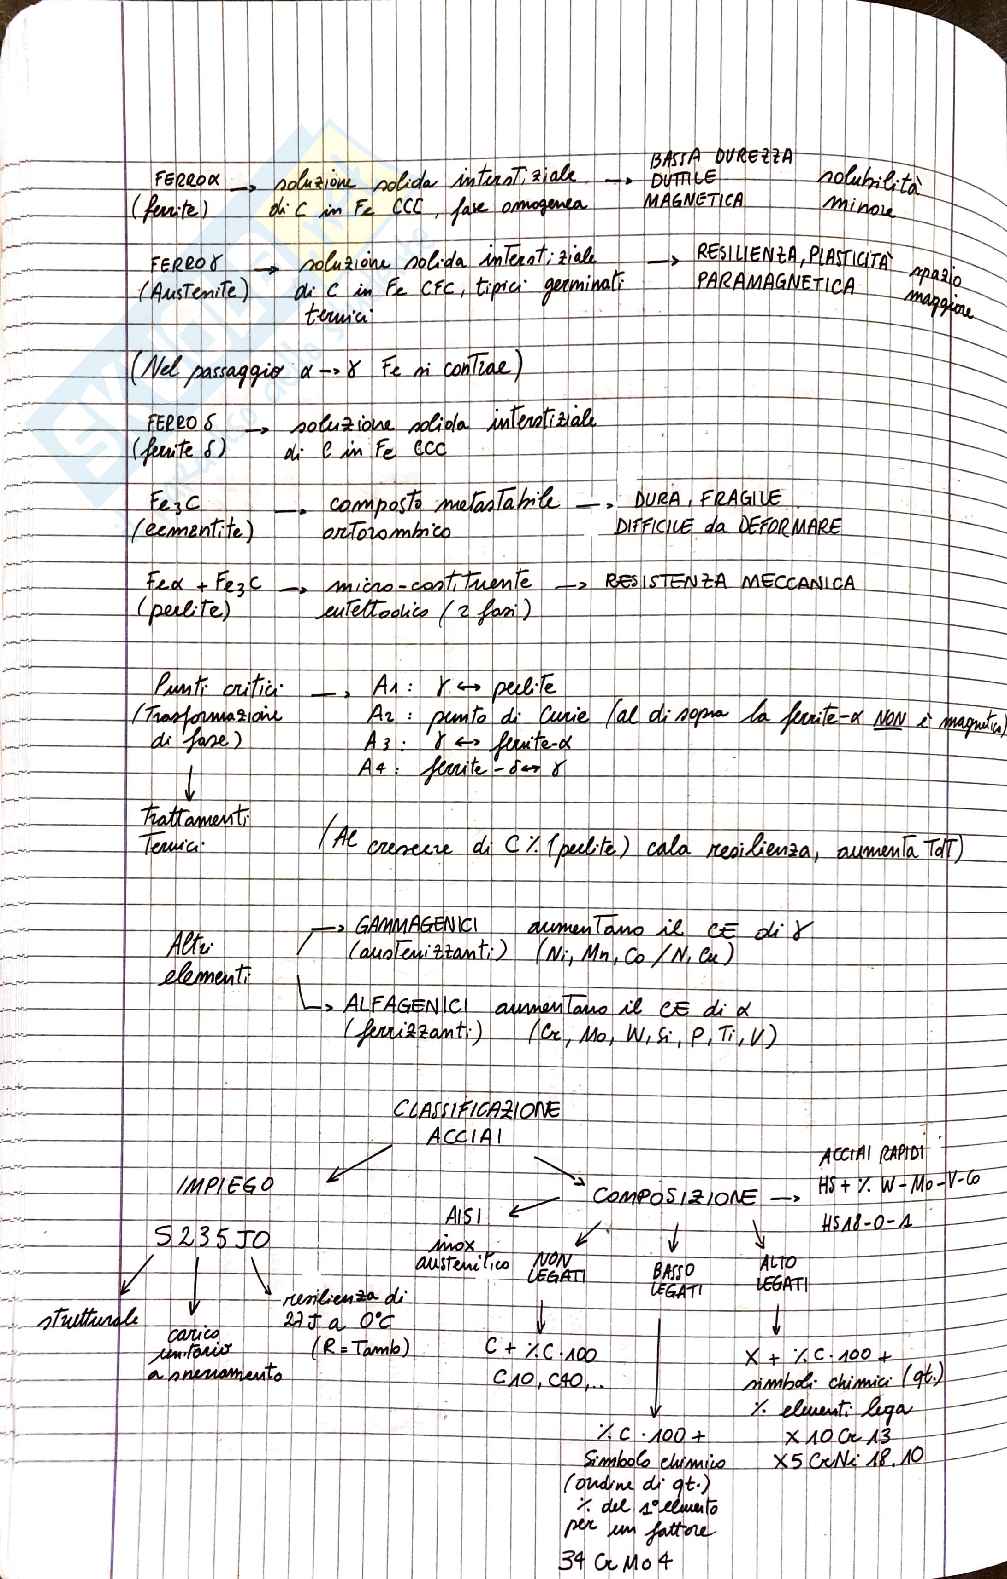 FERRO α → soluzione solida interstiziale → BASSA DUREZZA
(ferrite) di C in Fe CCC, fase omogenea DUTTILE solubilità
MAGNETICA minore
FERRO γ → soluzione solida interstiziale → RESILIENZA, PLASTICITÀ spazio
(Austenite) di C in Fe CFC, tipici germinati PARAMAGNETICA maggiore
termici
(Nel passaggio α → γ Fe si contrae)
FERRO δ → soluzione solida interstiziale
(ferrite δ) di C in Fe CCC
Fe3C → composto metastabile → DURA, FRAGILE
(cementite) ortorombico DIFFICILE da DEFORMARE
Feα + Fe3C → micro-costituente → RESISTENZA MECCANICA
(perlite) eutettoidico (2 fasi)
Punti critici → A1: γ ↔ perlite
(Trasformazione A2: punto di Curie (al di sopra la ferrite-α NON è magnetica)
di fase) A3: γ ↔ ferrite-α
A4: ferrite-δ ↔ γ
↓
Trattamenti
Termici (Al crescere di C% (perlite) cala resilienza, aumenta TdT)
→ GAMMAGENICI aumentano il CE di γ
Altri (austenizzanti) (Ni, Mn, Co / N, Cu)
elementi
→ ALFAGENICI aumentano il CE di α
(ferrizzanti) (Cr, Mo, W, Si, P, Ti, V)
CLASSIFICAZIONE
ACCIAI
IMPIEGO
S235J0
strutturale
carico
unitario
a snervamento
resilienza di
27J a 0°C
(R = Tamb)
COMPOSIZIONE →
ACCIAI RAPIDI
HS + % W-Mo-V-Co
HS18-0-1
AISI
inox
austenitico
NON
LEGATI
C + %C·100
C10, C40,..
BASSO
LEGATI
%C·100 +
Simbolo chimico
(ordine di qt.)
% del 1° elemento
per un fattore
34 CrMo4
ALTO
LEGATI
X + %C·100 +
simboli chimici (qt.)
% elementi lega
X10Cr13
X5CrNi 18.10